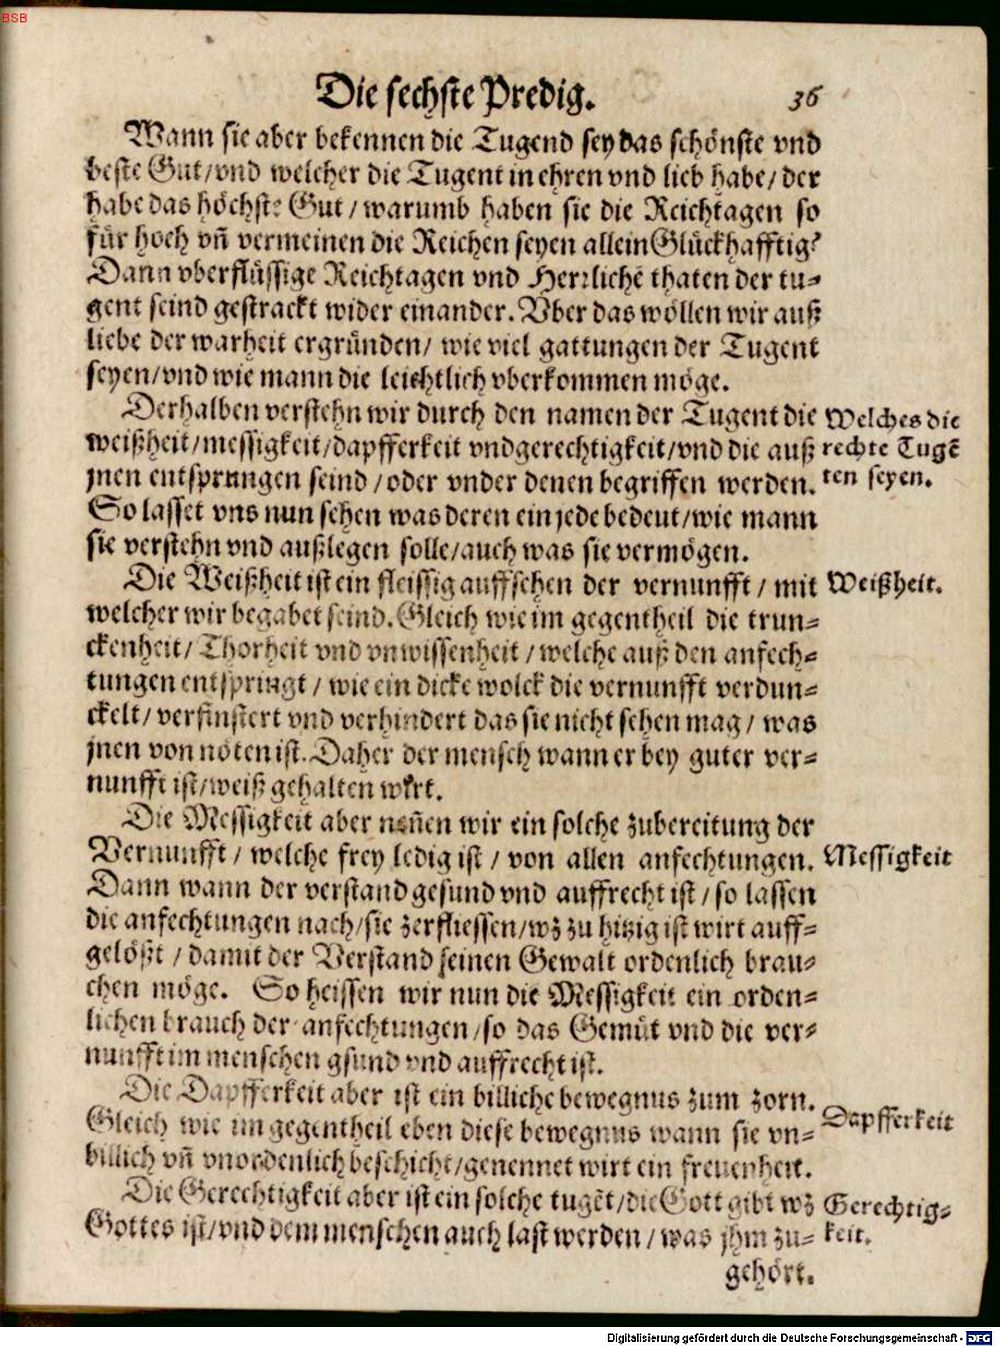 BSB
Die sechste Predig. 36
Wann sie aber bekennen die Tugend sey das schönste vnd
beste Gut/vnd welcher die Tugent in ehren vnd lieb habe/der
habe das höchste Gut/warumb haben sie die Reichtagen so
für hoch vñ vermeinen die Reichen seyen allein Glückhafftig?
Dann vberflüssige Reichtagen vnd Herrlichē thaten der tu-
gent seind gestrackt wider einander. Vber das wöllen wir auß
liebe der warheit ergründen/wie viel gattungen der Tugent
seyen/vnd wie mann die leichtlich vberkommen möge.
Derhalben verstehn wir durch den namen der Tugent die
weißheit/messigkeit/dapfferkeit vndgerechtigkeit/vnd die auß
jnen entsprungen seind/oder vnder denen begriffen werden.
Welches die
rechte Tugē
ten seyen.
So lasset vns nun sehen was deren ein jede bedeut/wie mann
sie verstehn vnd außlegen solle/auch was sie vermögen.
Die Weißheit ist ein fleissig auffsehen der vernunfft/mit
Weißheit.
welcher wir begabet seind. Gleich wie im gegentheil die trun-
ckenheit/Thorheit vnd vnwissenheit/welche auß den anfech-
tungen entspringt/wie ein dicke wolck die vernunfft verdun-
ckelt/verfinstert vnd verhindert das sie nicht sehen mag/was
jnen von nöten ist. Daher der mensch wann er bey guter ver-
nunfft ist/weiß gehalten wirt.
Die Messigkeit aber neñen wir ein solche zubereitung der
Vernunfft/welche frey ledig ist/von allen anfechtungen.
Messigkeit
Dann wann der verstand gesund vnd auffrecht ist/so lassen
die anfechtungen nach/sie zerfliessen/wz zu hitzig ist wirt auff-
gelößt/damit der Verstand seinen Gewalt ordenlich brau-
chen möge. So heissen wir nun die Messigkeit ein orden-
lichen brauch der anfechtungen/so das Gemüt vnd die ver-
nunfft im menschen gsund vnd auffrecht ist.
Die Dapfferkeit aber ist ein billiche bewegnus zum zorn.
Dapfferkeit
Gleich wie im gegentheil eben diese bewegnus wann sie vn-
billich vñ vnordenlich beschicht/genennet wirt ein freuenheit.
Die Gerechtigkeit aber ist ein solche tugēt/die Gott gibt wz
Gerechtig-
keit.
Gottes ist/vnd dem menschen auch last werden/was jhm zu-
gehört.
Digitalisierung gefördert durch die Deutsche Forschungsgemeinschaft - DFG